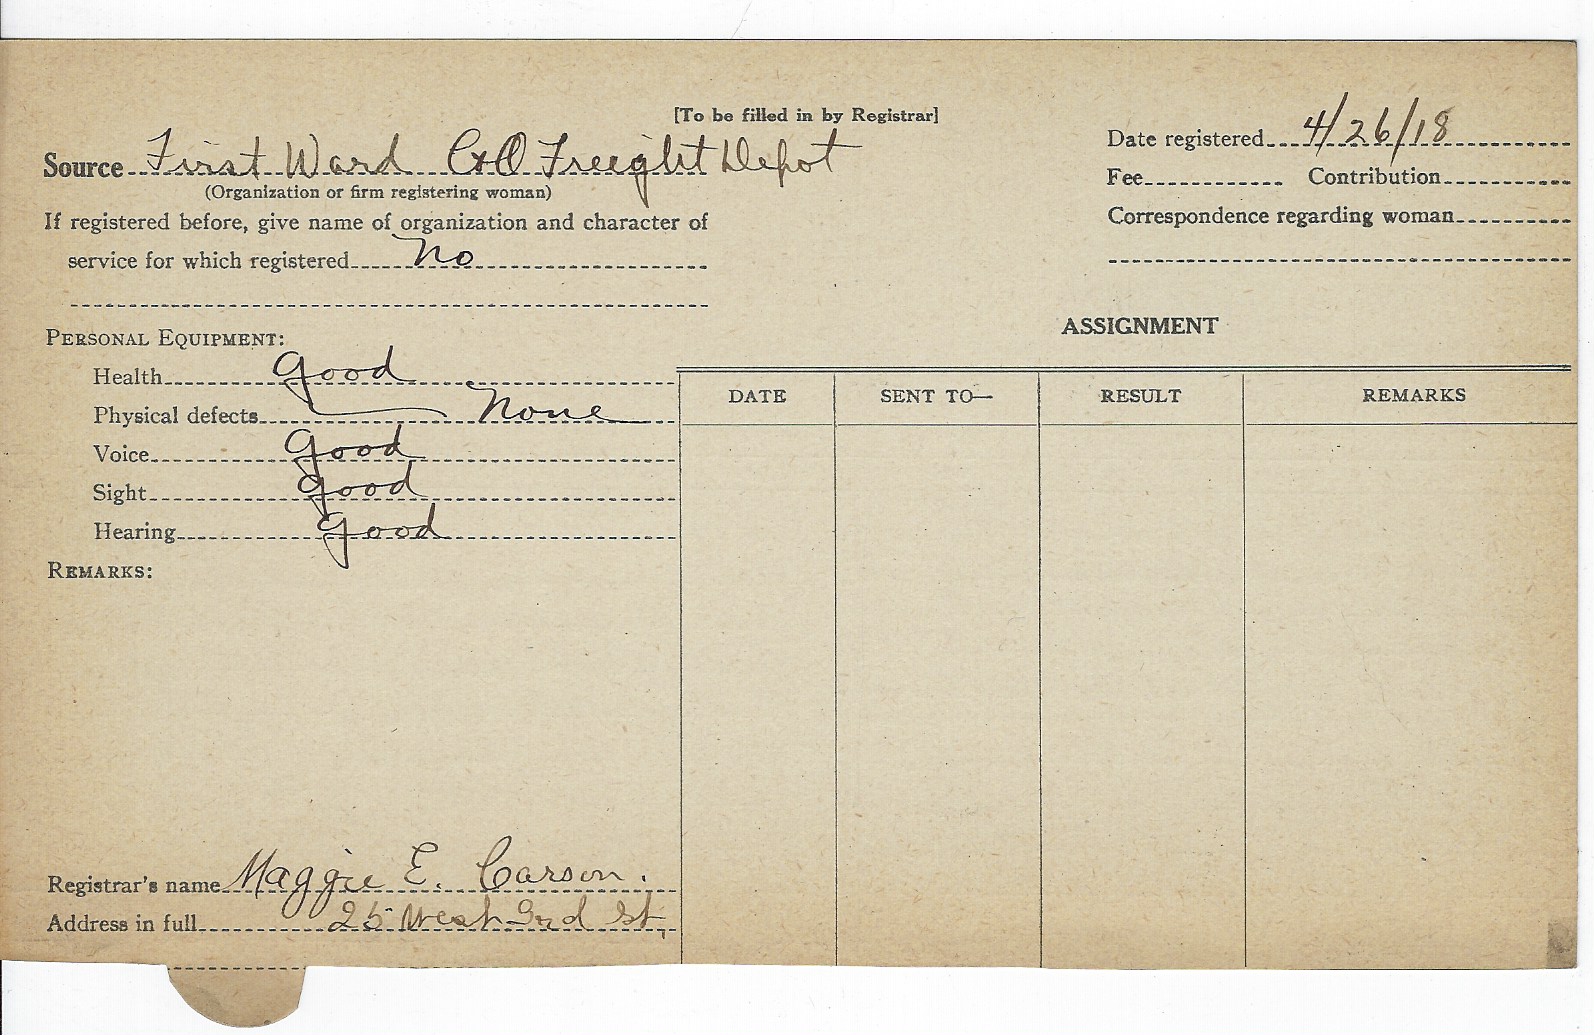 [To be filled in by Registrar]
Source First Ward C&O Freight Depot
(Organization or firm registering woman)
If registered before, give name of organization and character of
service for which registered No
Date registered 4/26/18
Fee Contribution
Correspondence regarding woman
PERSONAL EQUIPMENT:
Health good
Physical defects None
Voice good
Sight good
Hearing good
REMARKS:
ASSIGNMENT
DATE SENT TO— RESULT REMARKS
Registrar's name Maggie E. Carson.
Address in full 25 West 3rd St,